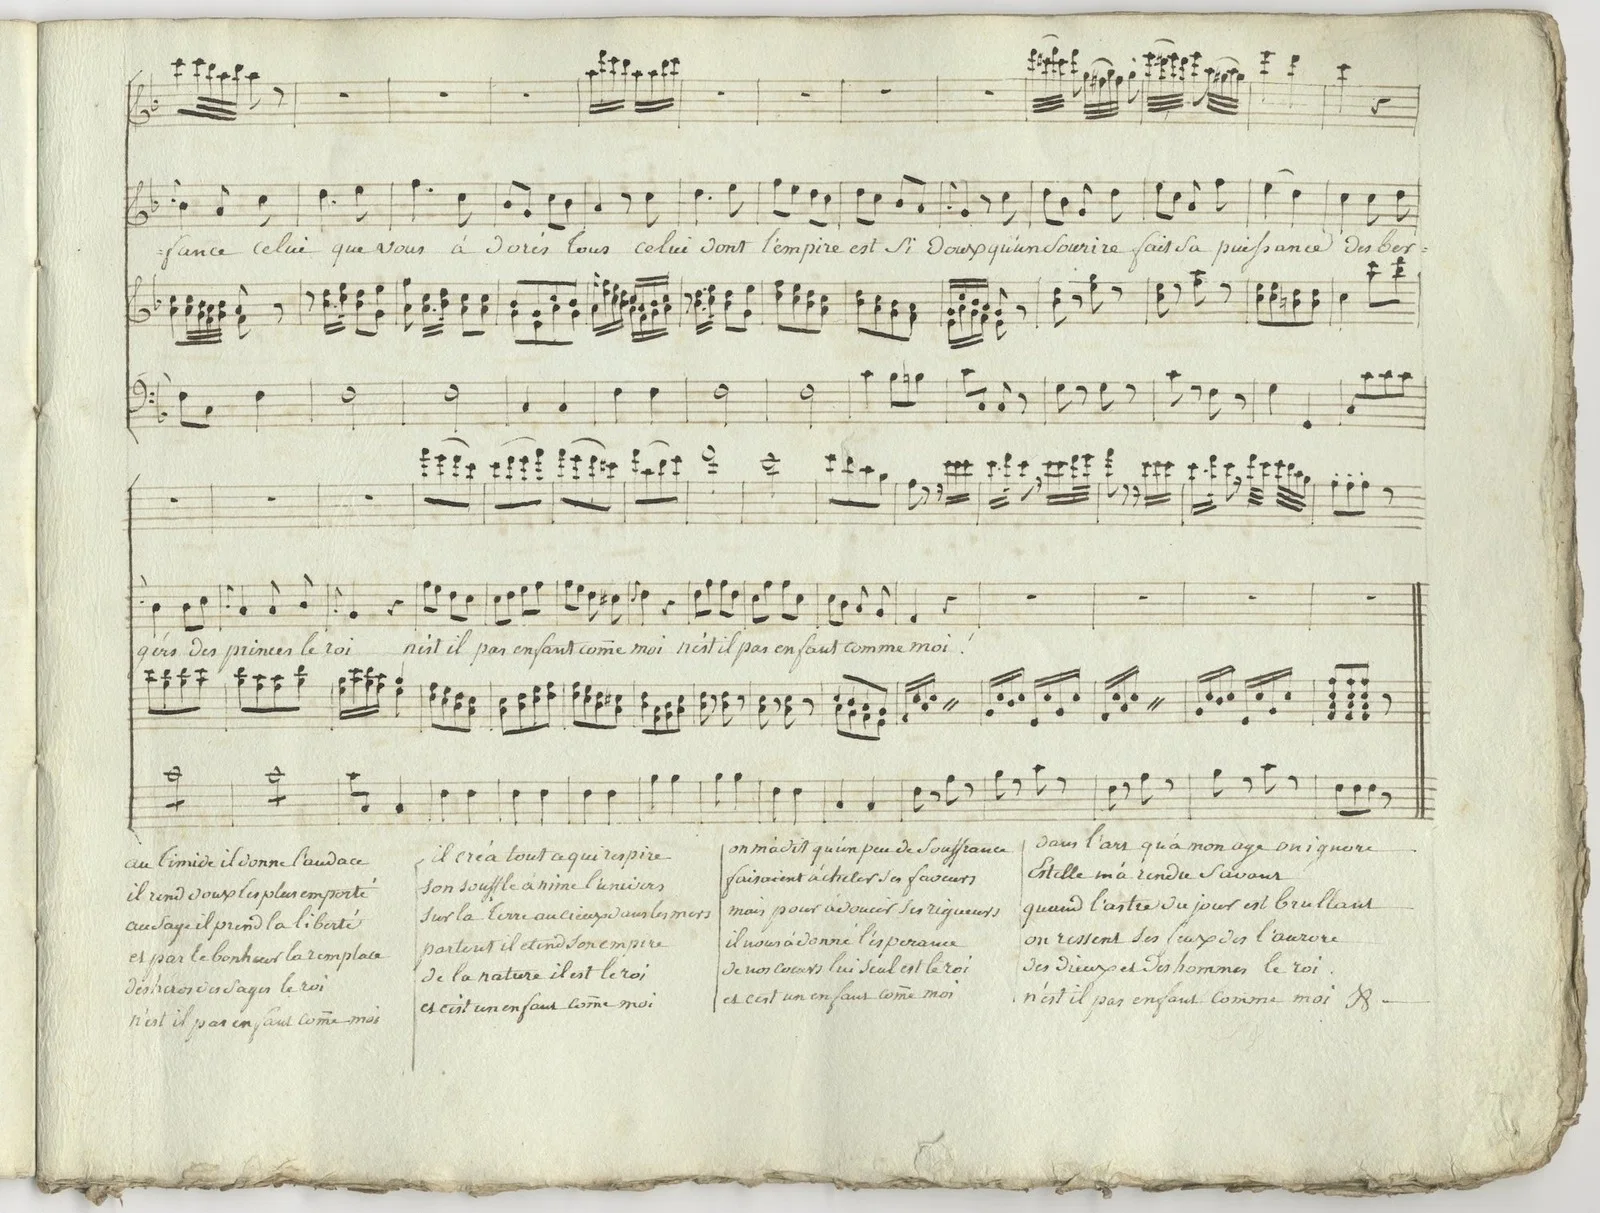 =sance celui que vous à dorés tous celui dont l'empire est si doux qu'un sourire fait sa puissance des ber=
gers des princes le roi n'est il pas enfant com̄e moi n'est il pas enfant comme moi !
au timide il donne l'audace
il rend doux les plus emporté
au sage il prend la liberté
et par le bonheur la remplace
des heros des sages le roi
n'est il pas enfant com̄e moi
il créa tout ce qui respire
son souffle à nime l'univers
sur la terre au cieux dans les mers
partout il etend son empire
de la nature il est le roi
et c'est un enfant com̄e moi
on m'a dit qu'un peu de souffrance
faisoient acheter ses faveurs
mais pour adoucir ses rigueurs
il nous à donné l'esperance
de nos cœurs lui seul est le roi
et c'est un enfant com̄e moi
dans l'art qu'a mon age on ignore
Estelle m'à rendu savant
quand l'astre du jour est brullant
on ressent ses feux des l'aurore
des dieux et des hommes le roi.
n'est il pas enfant comme moi